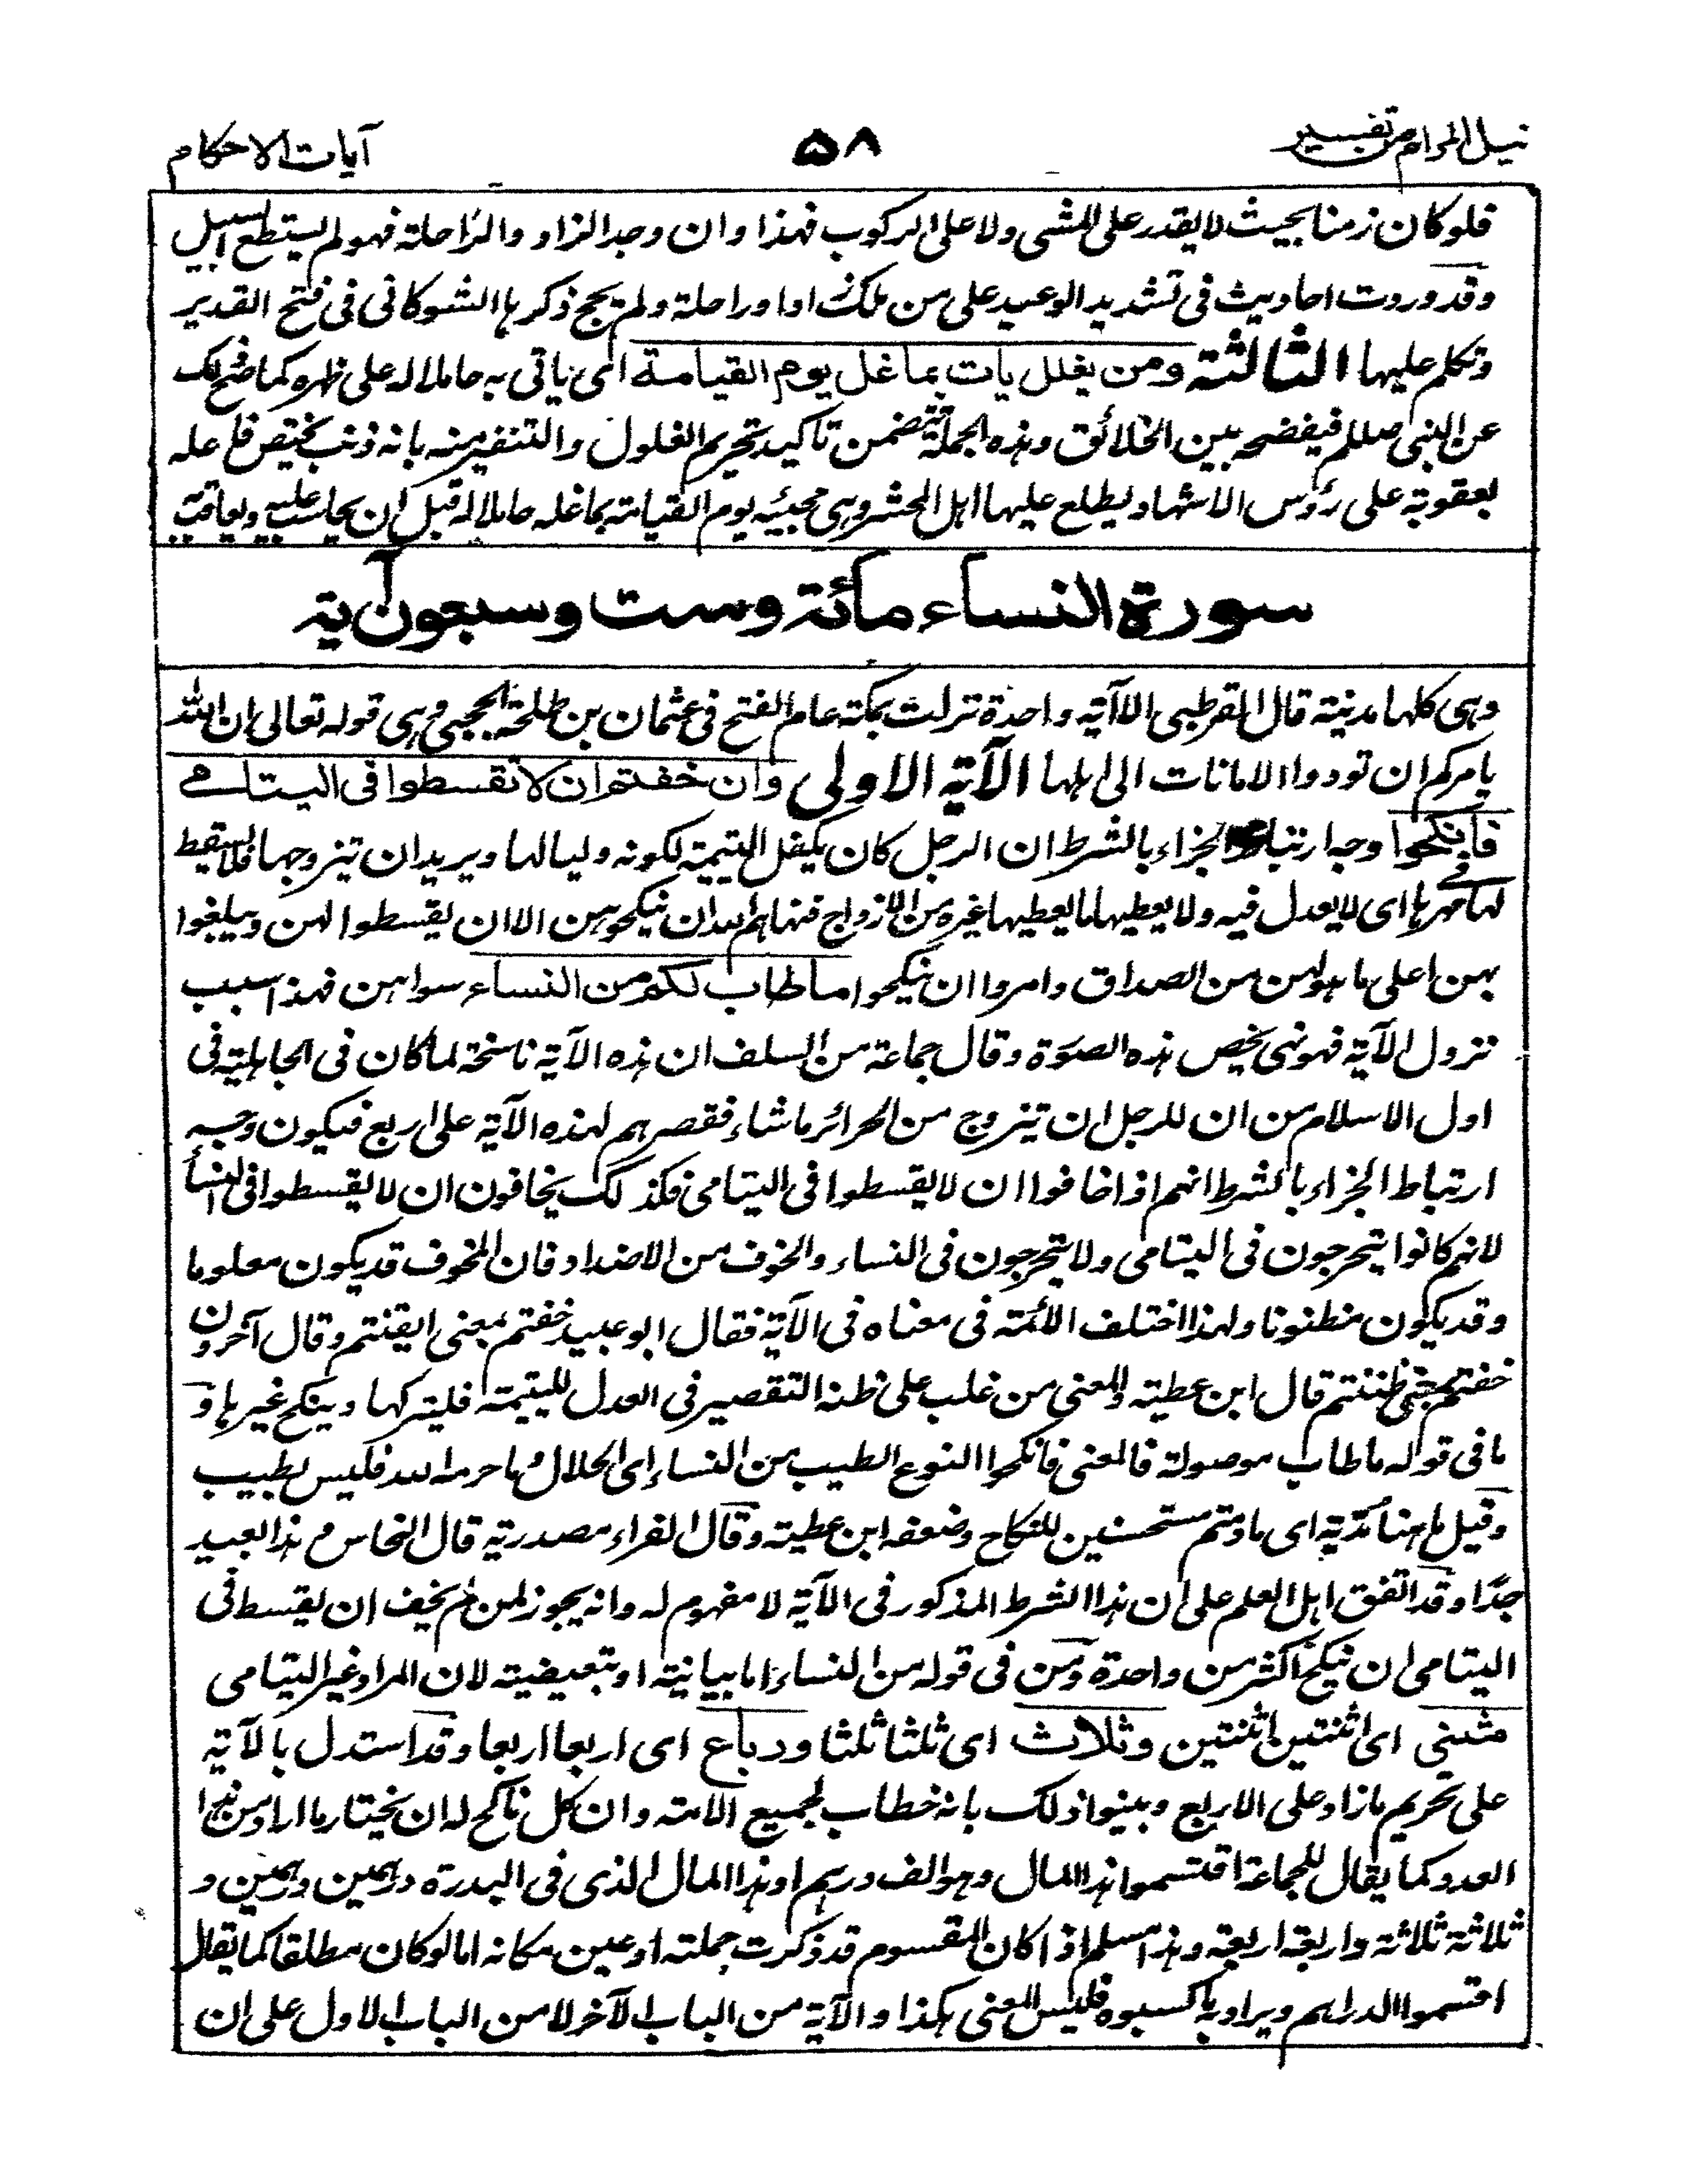 نيل المرام من تفسير
۵۸
آيات الاحكام
فلو كان زمنا بحيث لا يقدر على المشى ولا على الركوب فهذا وان وجد الزاد والراحلة فهو لم يستطع السبيل
وقد وردت احاديث فى تشديد الوعيد على من ملك زادا وراحلة ولم يحج ذكرها الشوكانى فى فتح القدير
وتكلم عليها الثالثة ومن يغلل يات بما غل يوم القيامة اى ياتى به حاملا له على ظهره كما صح ذلك
عن النبى صللم فيفضحه بين الخلائق وهذه الجملة تتضمن تاكيد تحريم الغلول والتنفير منه بانه ذنب يختص فاعله
بعقوبة على رؤس الاشهاد يطلع عليها اهل المحشر وهى مجيئه يوم القيامة بما غله حاملا له قبل ان يحاسب عليه ويعاقب
سورة النساء مائة وست وسبعون آية
وهى كلها مدنية قال القرطبى الا آية واحدة نزلت بمكة عام الفتح فى عثمان بن طلحة الحجبى وهى قوله تعالى ان الله
يامركم ان تودوا الامانات الى اهلها الآية الاولى وان خفتم ان لا تقسطوا فى اليتامے
فانكحوا وجه ارتباط الجزاء بالشرط ان الرجل كان يكفل اليتيمة لكونه وليا لها ويريد ان يتزوجها فلا يقسط
لها فى مهرها اى لا يعدل فيه ولا يعطيها ما يعطيها غيره من الازواج فنهاهم الله ان ينكحوهن الا ان يقسطوا لهن ويبلغوا
بهن اعلى ما هو لهن من الصداق وامروا ان ينكحوا ما طاب لكم من النساء سواهن فهذا سبب
نزول الآية فهو نهى يخص هذه الصورة وقال جماعة من السلف ان هذه الآية ناسخة لما كان فى الجاهلية فى
اول الاسلام من ان للرجل ان يتزوج من الحرائر ما شاء فقصرهم لهذه الآية على اربع فيكون وجه
ارتباط الجزاء بالشرط انهم اذا خافوا ان لا يقسطوا فى اليتامى فكذلك يخافون ان لا يقسطوا فى النساء
لانهم كانوا يتحرجون فى اليتامى ولا يتحرجون فى النساء والخوف من الاضداد فان المخوف قد يكون معلوما
وقد يكون مظنونا ولهذا اختلف الأئمة فى معناه فى الآية فقال ابو عبيد خفتم بمعنى ايقنتم وقال آخرون
خفتم بمعنى ظننتم قال ابن عطية والمعنى من غلب على ظنه التقصير فى العدل لليتيمة فليتركها وينكح غيرها و
ما فى قوله ما طاب موصولة فالمعنى فانكحوا النوع الطيب من النساء اى الحلال وما حرمه الله فليس بطيب
وقيل ما هنا مدّية اى ما دمتم مستحسنين للنكاح وضعفه ابن عطية وقال الفراء مصدرية قال النحاس وهذا بعيد
جدّا وقد اتفق اهل العلم على ان هذا الشرط المذكور فى الآية لا مفهوم له وانه يجوز لمن لم يخف ان يقسط فى
اليتامى ان ينكح اكثر من واحدة ومن فى قوله من النساء اما بيانية او تبعيضية لان المراد غير اليتامى
مثنى اى اثنتين اثنتين وثلاث اى ثلثا ثلثا ورباع اى اربعا اربعا وقد استدل بالآية
على تحريم ما زاد على الاربع وبينوا ذلك بانه خطاب لجميع الامة وان كل ناكح له ان يختار ما اراد من هذا
العدد كما يقال للجماعة اقتسموا هذا المال وهو الف درهم او هذا المال الذى فى البدرة درهمين درهمين و
ثلاثة ثلاثة واربعة اربعة وهذا مسلم اذا كان المقسوم قد ذكرت جملته او عين مكانه اما لو كان مطلقا كما يقال
اقتسموا الدراهم ويراد به ما كسبوه فليس المعنى هكذا والآية من الباب الآخر لا من الباب الاول على ان